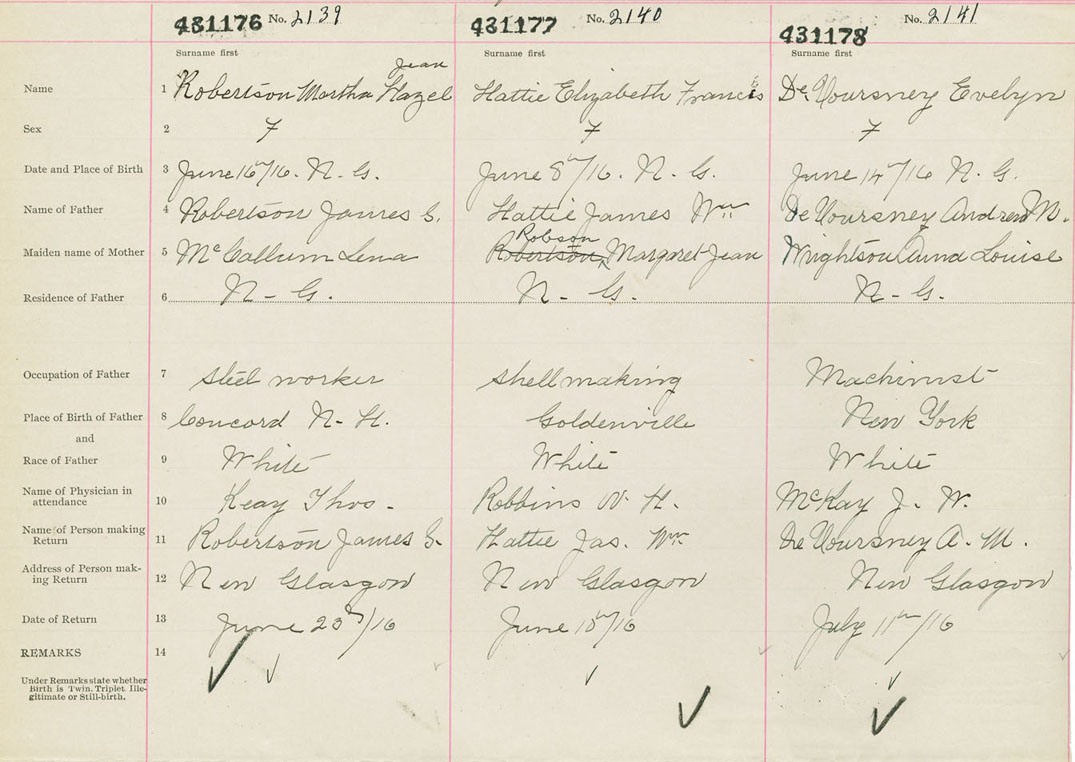 431176 No. 2139 431177 No. 2140 431178 No. 2141
Surname first Surname first Surname first
Jean
Name 1 Robertson Martha Hazel Hattie Elizabeth Francis De Voursney Evelyn
Sex 2 F F F
Date and Place of Birth 3 June 16th/16. N. G. June 8th/16. N. G. June 14th/16 N. G.
Name of Father 4 Robertson James S. Hattie James Wm De Voursney Andrew M.
Robson
Maiden name of Mother 5 McCallum Lena Robertson Margaret Jean Wrightson Anna Louise
Residence of Father 6 N - G. N - G. N - G.
Occupation of Father 7 Steel worker Shell making Machinist
Place of Birth of Father 8 Concord N. H. Goldenville New York
and
Race of Father 9 White White White
Name of Physician in
attendance 10 Keay Thos. Robbins W. H. McKay J. W.
Name of Person making
Return 11 Robertson James S. Hattie Jas. Wm De Voursney A. M.
Address of Person mak-
ing Return 12 New Glasgow New Glasgow New Glasgow
Date of Return 13 June 23rd/16 June 15th/16 July 11th/16
REMARKS 14
Under Remarks state whether
Birth is Twin, Triplet, Ille-
gitimate or Still-birth.